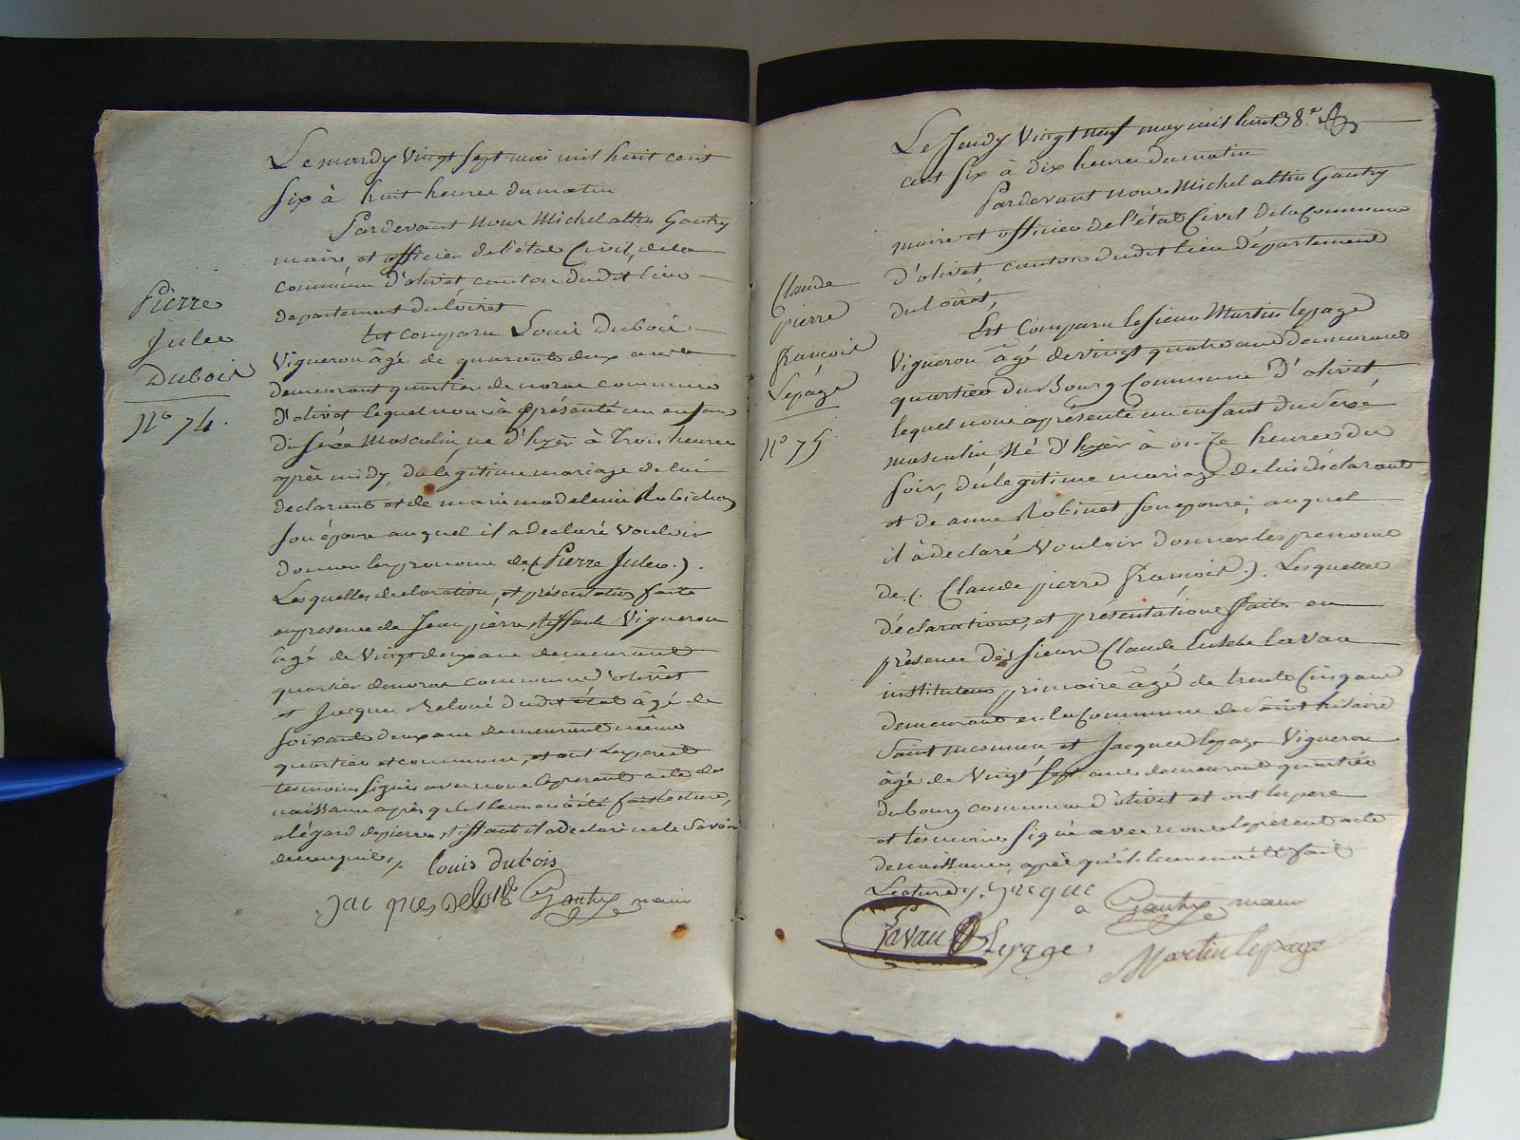 Le mardy vingt sept mai mil huit cent
six à huit heures du matin
Pardevant nous Michel Gautry
maire et officier de l'état Civil, de la
commune d'olivet canton dudit lieu
departement du loiret
Est comparu Louis Dubois
Vigneron âgé de quarante deux ans
demeurant quartier de commune
d'olivet lequel nous à présenté un enfant
du sexe masculin, né d'hyer à trois heures
après midy, du légitime mariage de lui
déclarant et de marie madeleine Robichon
son épouse auquel il a déclaré vouloir
donner les prenoms de (Pierre Jules.).
Les quelles declaration, et présentation faite
en presence de Jean pierre Vigneron
âgé de Vingt deux ans demeurant
quartier commune d'olivet
et Jacques dudit état âgé de
soixante deux ans demeurant même
quartier et commune, et ont les père et
temoins signés avec nous le present acte de
naissance après qu'il leur en a été fait lecture,
a légard de pierre il a declaré ne le savoir
de ce enquis ./.
louis dubois
Jacques Gautry maire
Pierre
Jules
Dubois
N° 74.
38.e
Le Jeudy Vingt neuf may mil huit
cent six à dix heures du matin
Pardevant nous Michel Gautry
maire et officier de l'état Civil de la Commune
d'olivet canton dudit lieu département
du loiret,
Est Comparu le sieur Martin lepage
Vigneron âgé de vingt quatre ans demeurant
quartier du Bourg Commune d'olivet
lequel nous a présenté un enfant du sexe
masculin Né d'hyer à onze heures du
soir, du légitime mariage de lui déclarant
et de anne Robinet son épouse; auquel
il à déclaré Vouloir donner les prenoms
de (. Claude pierre françois.). Lesquelles
déclarations, et presentations faites en
présence des sieurs Claude Lavau
instituteur primaire âgé de trente Cinq ans
demeurant en la Commune de saint hilaire
Saint mesmin et Jacques lepage Vigneron
âgé de Vingt sept ans demeurant quartier
du bourg commune d'olivet et ont les pere
et témoins signé avec nous le present acte
de naissance, après qu'il leur en a été fait
Lecture ./. Jacque
Gautry maire
Lavau Lepage
Martin lepage
Claude
pierre
françois
Lepage
N° 75